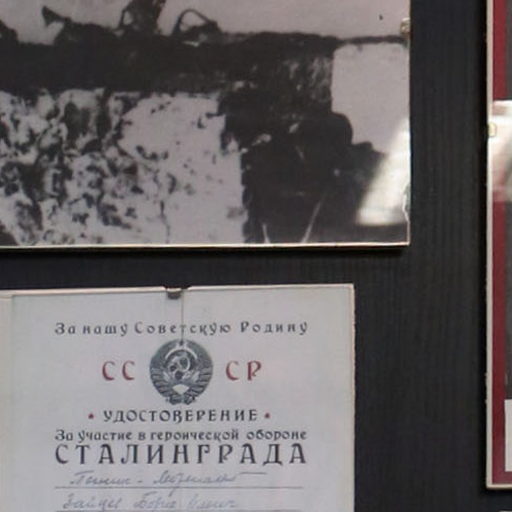 За нашу Советскую Родину
СС СР
УДОСТОВЕРЕНИЕ
За участие в героической обороне
СТАЛИНГРАДА
Зайцев